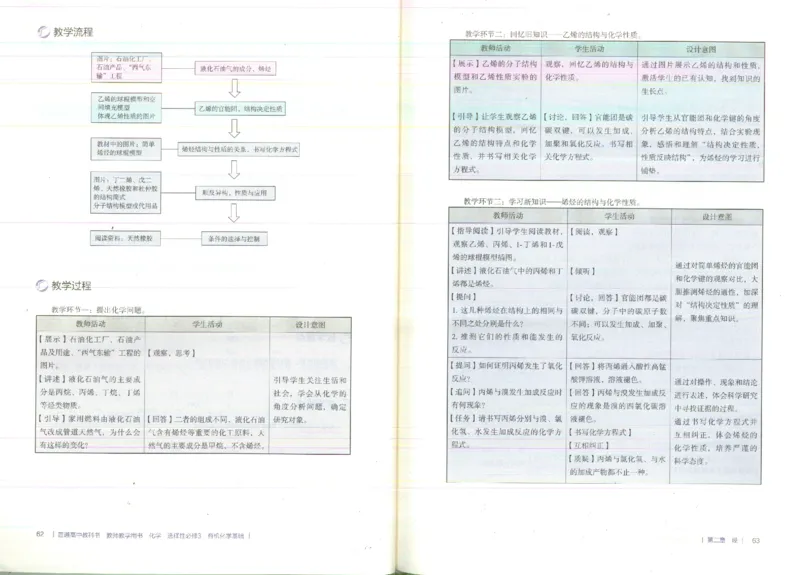 教学流程
图片：石油化工厂、
石油产品、“西气东
输”工程
液化石油气的成分、烯烃
乙烯的球棍模型和空
间填充模型
体现乙烯性质的图片
乙烯的官能团、结构决定性质
教材中的图片：简单
烯烃的球棍模型
烯烃结构与性质的关系、书写化学方程式
图片：丁二烯、戊二
烯、天然橡胶和杜仲胶
的结构简式
分子结构模型或代用品
顺反异构、性质与应用
阅读资料：天然橡胶
条件的选择与控制
教学过程
教学环节一：提出化学问题。
教师活动 学生活动 设计意图
【展示】石油化工厂、石油产
品及用途、“西气东输”工程的
图片。
【观察，思考】
【讲述】液化石油气的主要成
分是丙烷、丙烯、丁烷、丁烯
等烃类物质。
【引导】家用燃料由液化石油
气改成管道天然气，为什么会
有这样的变化？
【回答】二者的组成不同，液化石油
气含有烯烃等重要的化工原料，天
然气的主要成分是甲烷，不含烯烃。
引导学生关注生活和
社会，学会从化学的
角度分析问题，确定
研究对象。
82 | 普通高中教科书 教师教学用书 化学 选择性必修3 有机化学基础 |
教学环节二：回忆旧知识——乙烯的结构与化学性质。
教师活动 学生活动 设计意图
【展示】乙烯的分子结构
模型和乙烯性质实验的
图片。
观察，回忆乙烯的结构与
化学性质。
通过图片展示乙烯的结构和性质，
激活学生的已有认知，找到知识的
生长点。
【引导】让学生观察乙烯
的分子结构模型，回忆
乙烯的结构特点和化学
性质，并书写相关化学
方程式。
【讨论，回答】官能团是碳
碳双键，可以发生加成、
加聚和氧化反应。书写相
关化学方程式。
引导学生从官能团和化学键的角度
分析乙烯的结构特点，结合实验现
象，感悟和理解“结构决定性质，
性质反映结构”，为烯烃的学习进行
铺垫。
教学环节二：学习新知识——烯烃的结构与化学性质。
教师活动 学生活动 设计意图
【指导阅读】引导学生阅读教材，
观察乙烯、丙烯、1-丁烯和1-戊
烯的球棍模型插图。
【阅读，观察】
【讲述】液化石油气中的丙烯和丁
烯都是烯烃。
【倾听】
【提问】
1. 这几种烯烃在结构上的相同与
不同之处分别是什么？
2. 推测它们的性质和能发生的
反应。
【讨论，回答】官能团都是碳
碳双键，分子中的碳原子数
不同；可以发生加成、加聚、
氧化反应。
通过对简单烯烃的官能团
和化学键的观察对比，大
胆推测烯烃的通性，加深
对“结构决定性质”的理
解，聚焦重点知识。
【提问】如何证明丙烯发生了氧化
反应？
【追问】丙烯与溴发生加成反应时
有何现象？
【任务】请书写丙烯分别与溴、氯
化氢、水发生加成反应的化学方
程式。
【回答】将丙烯通入酸性高锰
酸钾溶液，溶液褪色。
【回答】丙烯与溴发生加成反
应的现象是溴的四氯化碳溶
液褪色。
【书写化学方程式】
【互相纠正】
【质疑】丙烯与氯化氢、与水
的加成产物都不止一种。
通过对操作、现象和结论
进行表述，体会科学研究
中寻找证据的过程。
通过书写化学方程式并
互相纠正，体会烯烃的
化学性质，培养严谨的
科学态度。
| 第二章 烃 | 83